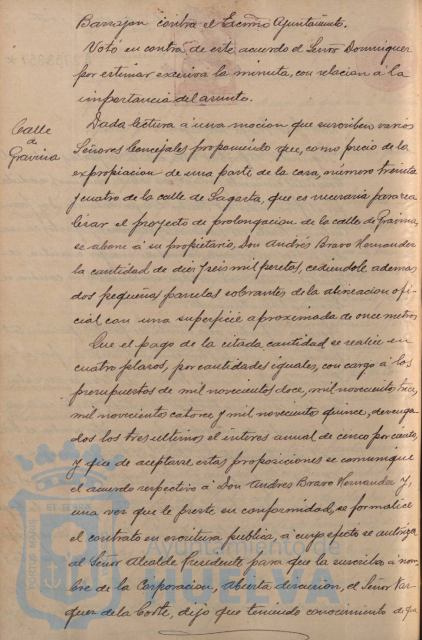 Barrajon contra el Excmo Ayuntamto.
Votó en contra de este acuerdo el Señor Dominguez
por estimar excesiva la minuta, con relacion a la
importancia del asunto.
Calle
de
Gravina
Dada lectura a una mocion que suscriben varios
Señores Concejales proponiendo que, como precio de la
expropiacion de una parte de la casa, número treinta
y cuatro de la calle de Sagasta, que es necesaria para rea
lizar el proyecto de prolongacion de la calle de Gravina,
se abone á su propietario, Don Andrés Bravo Hernandez
la cantidad de diez y seis mil pesetas, cediendole ademas
dos pequeñas parcelas sobrantes de la alineacion ofi
cial con una superficie aproximada de once metros
Que el pago de la citada cantidad se realice en
cuatro plazos, por cantidades iguales, con cargo á los
presupuestos de mil novecientos doce, mil novecientos trece,
mil novecientos catorce y mil novecientos quince, devenga
dos los tres ultimos el interes anual de cinco por ciento,
y que de aceptarse estas proposiciones se comunique
el acuerdo respectivo á Don Andres Bravo Hernandez y,
una vez que le preste su conformidad, se formalice
el contrato en escritura publica, a cuyo efecto se autoriza
al Señor Alcalde Presidente para que la suscriba á nom
bre de la Corporacion, Abierta discusion, el Señor Vaz
quez de la Corte, dijo que teniendo conocimiento de que
Ayuntamiento de
PORTUS MARIS